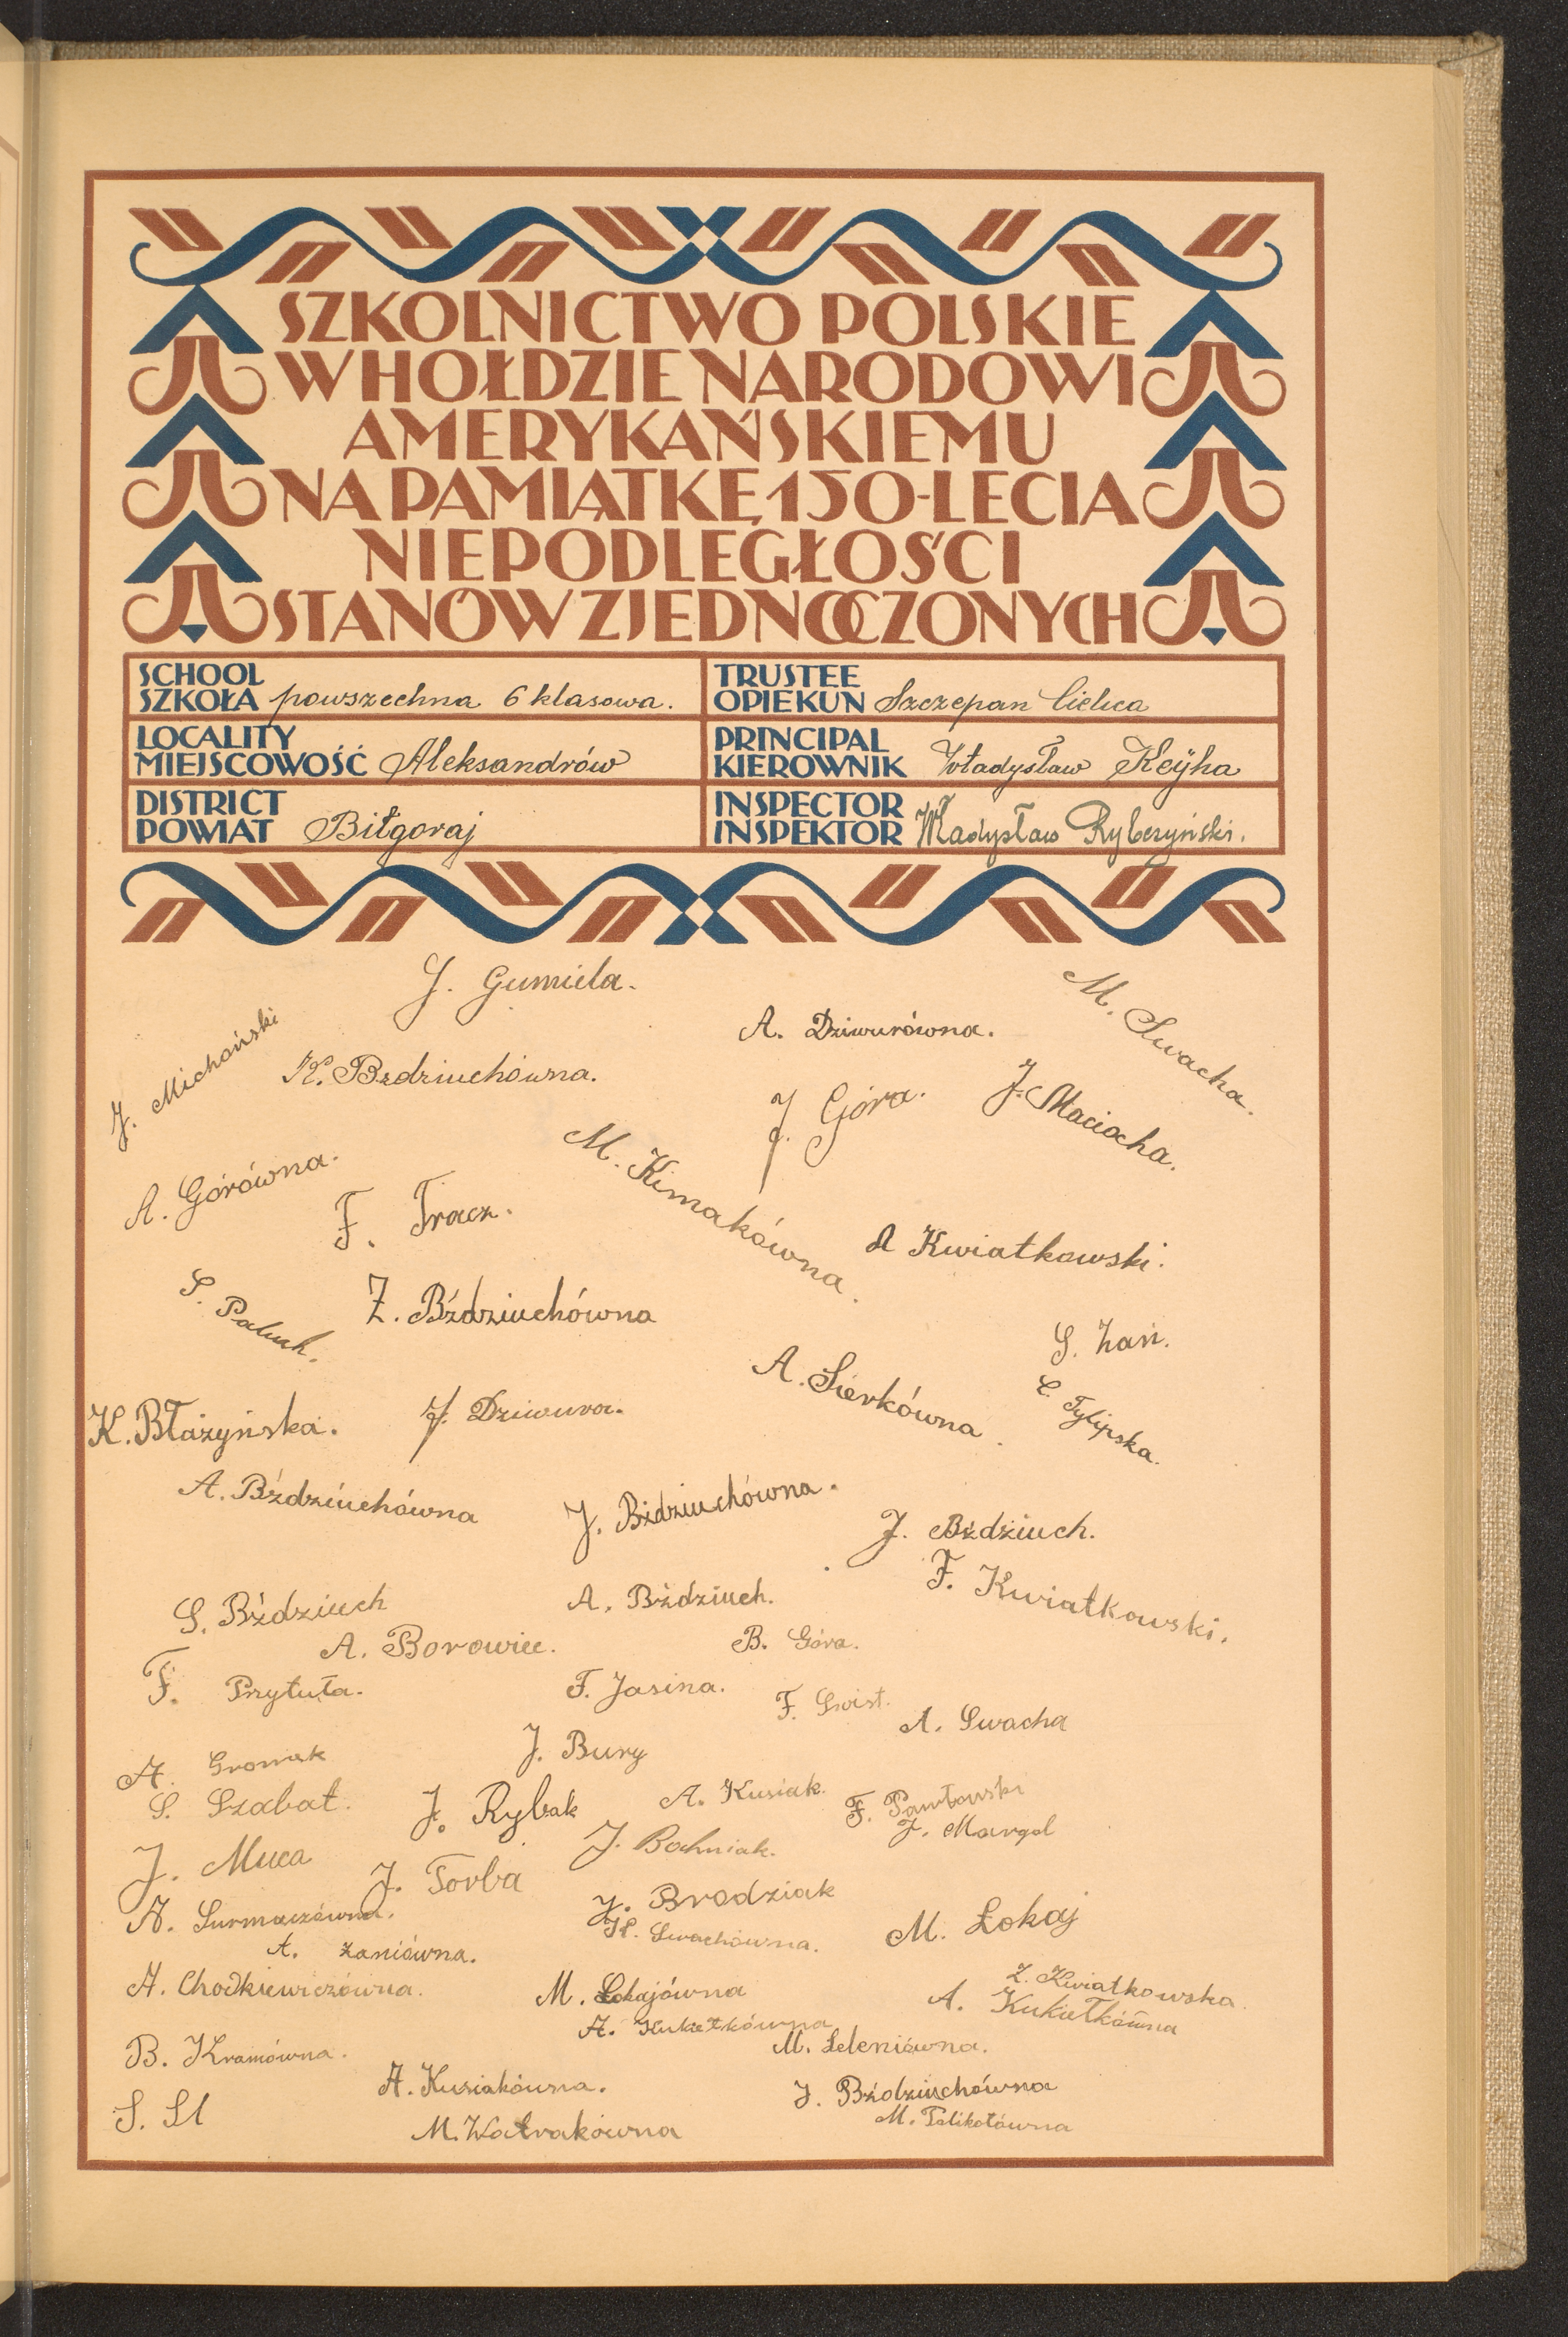 SZKOLNICTWO POLSKIE
W HOŁDZIE NARODOWI
AMERYKAŃSKIEMU
NA PAMIĄTKĘ 150-LECIA
NIEPODLEGŁOŚCI
STANÓW ZJEDNOCZONYCH
SCHOOL
SZKOŁA powszechna 6 klasowa.
TRUSTEE
OPIEKUN Szczepan Cielica
LOCALITY
MIEJSCOWOŚĆ Aleksandrów
PRINCIPAL
KIEROWNIK Władysław Keyha
DISTRICT
POWIAT Biłgoraj
INSPECTOR
INSPEKTOR Władysław Rybczyński.
J. Gumiela.
M. Swacha.
J. Michoński
A. Dziwurówna.
K. Bzdziuchówna.
J. Góra.
J. Maciocha.
A. Górówna.
M. Kimakówna.
F. Tracz.
A Kwiatkowski.
S. Paluch.
Z. Bździuchówna
S. Zań.
A. Sierkówna.
C. Tylipska.
K. Błażyńska.
J. Dziwura.
A. Bździuchówna
J. Bździuchówna.
J. Bździuch.
F. Kwiatkowski.
S. Bździuch
A. Bździuch.
A. Borowiec.
B. Góra.
F. Przytuła.
F. Jasina.
F. Świst.
A. Swacha
A. Gromek
J. Bury
S. Szabat.
J. Rybak
A. Kusiak.
F. Pawłowski
J. Margol
J. Muca
J. Torba
J. Bachniak.
A. Surmaczówna.
J. Brodziak
K. Swachówna.
M. Łokaj
A. Zaniówna.
A. Chodkiewiczówna.
M. Łokajówna
Z. Kwiatkowska.
A. Kukiełkówna
A. Kukiełkówna
B. Kramówna.
M. Leleniówna.
A. Kusiakówna.
J. Bździuchówna
S. Sl
M. Watrakówna
M. Palikotówna